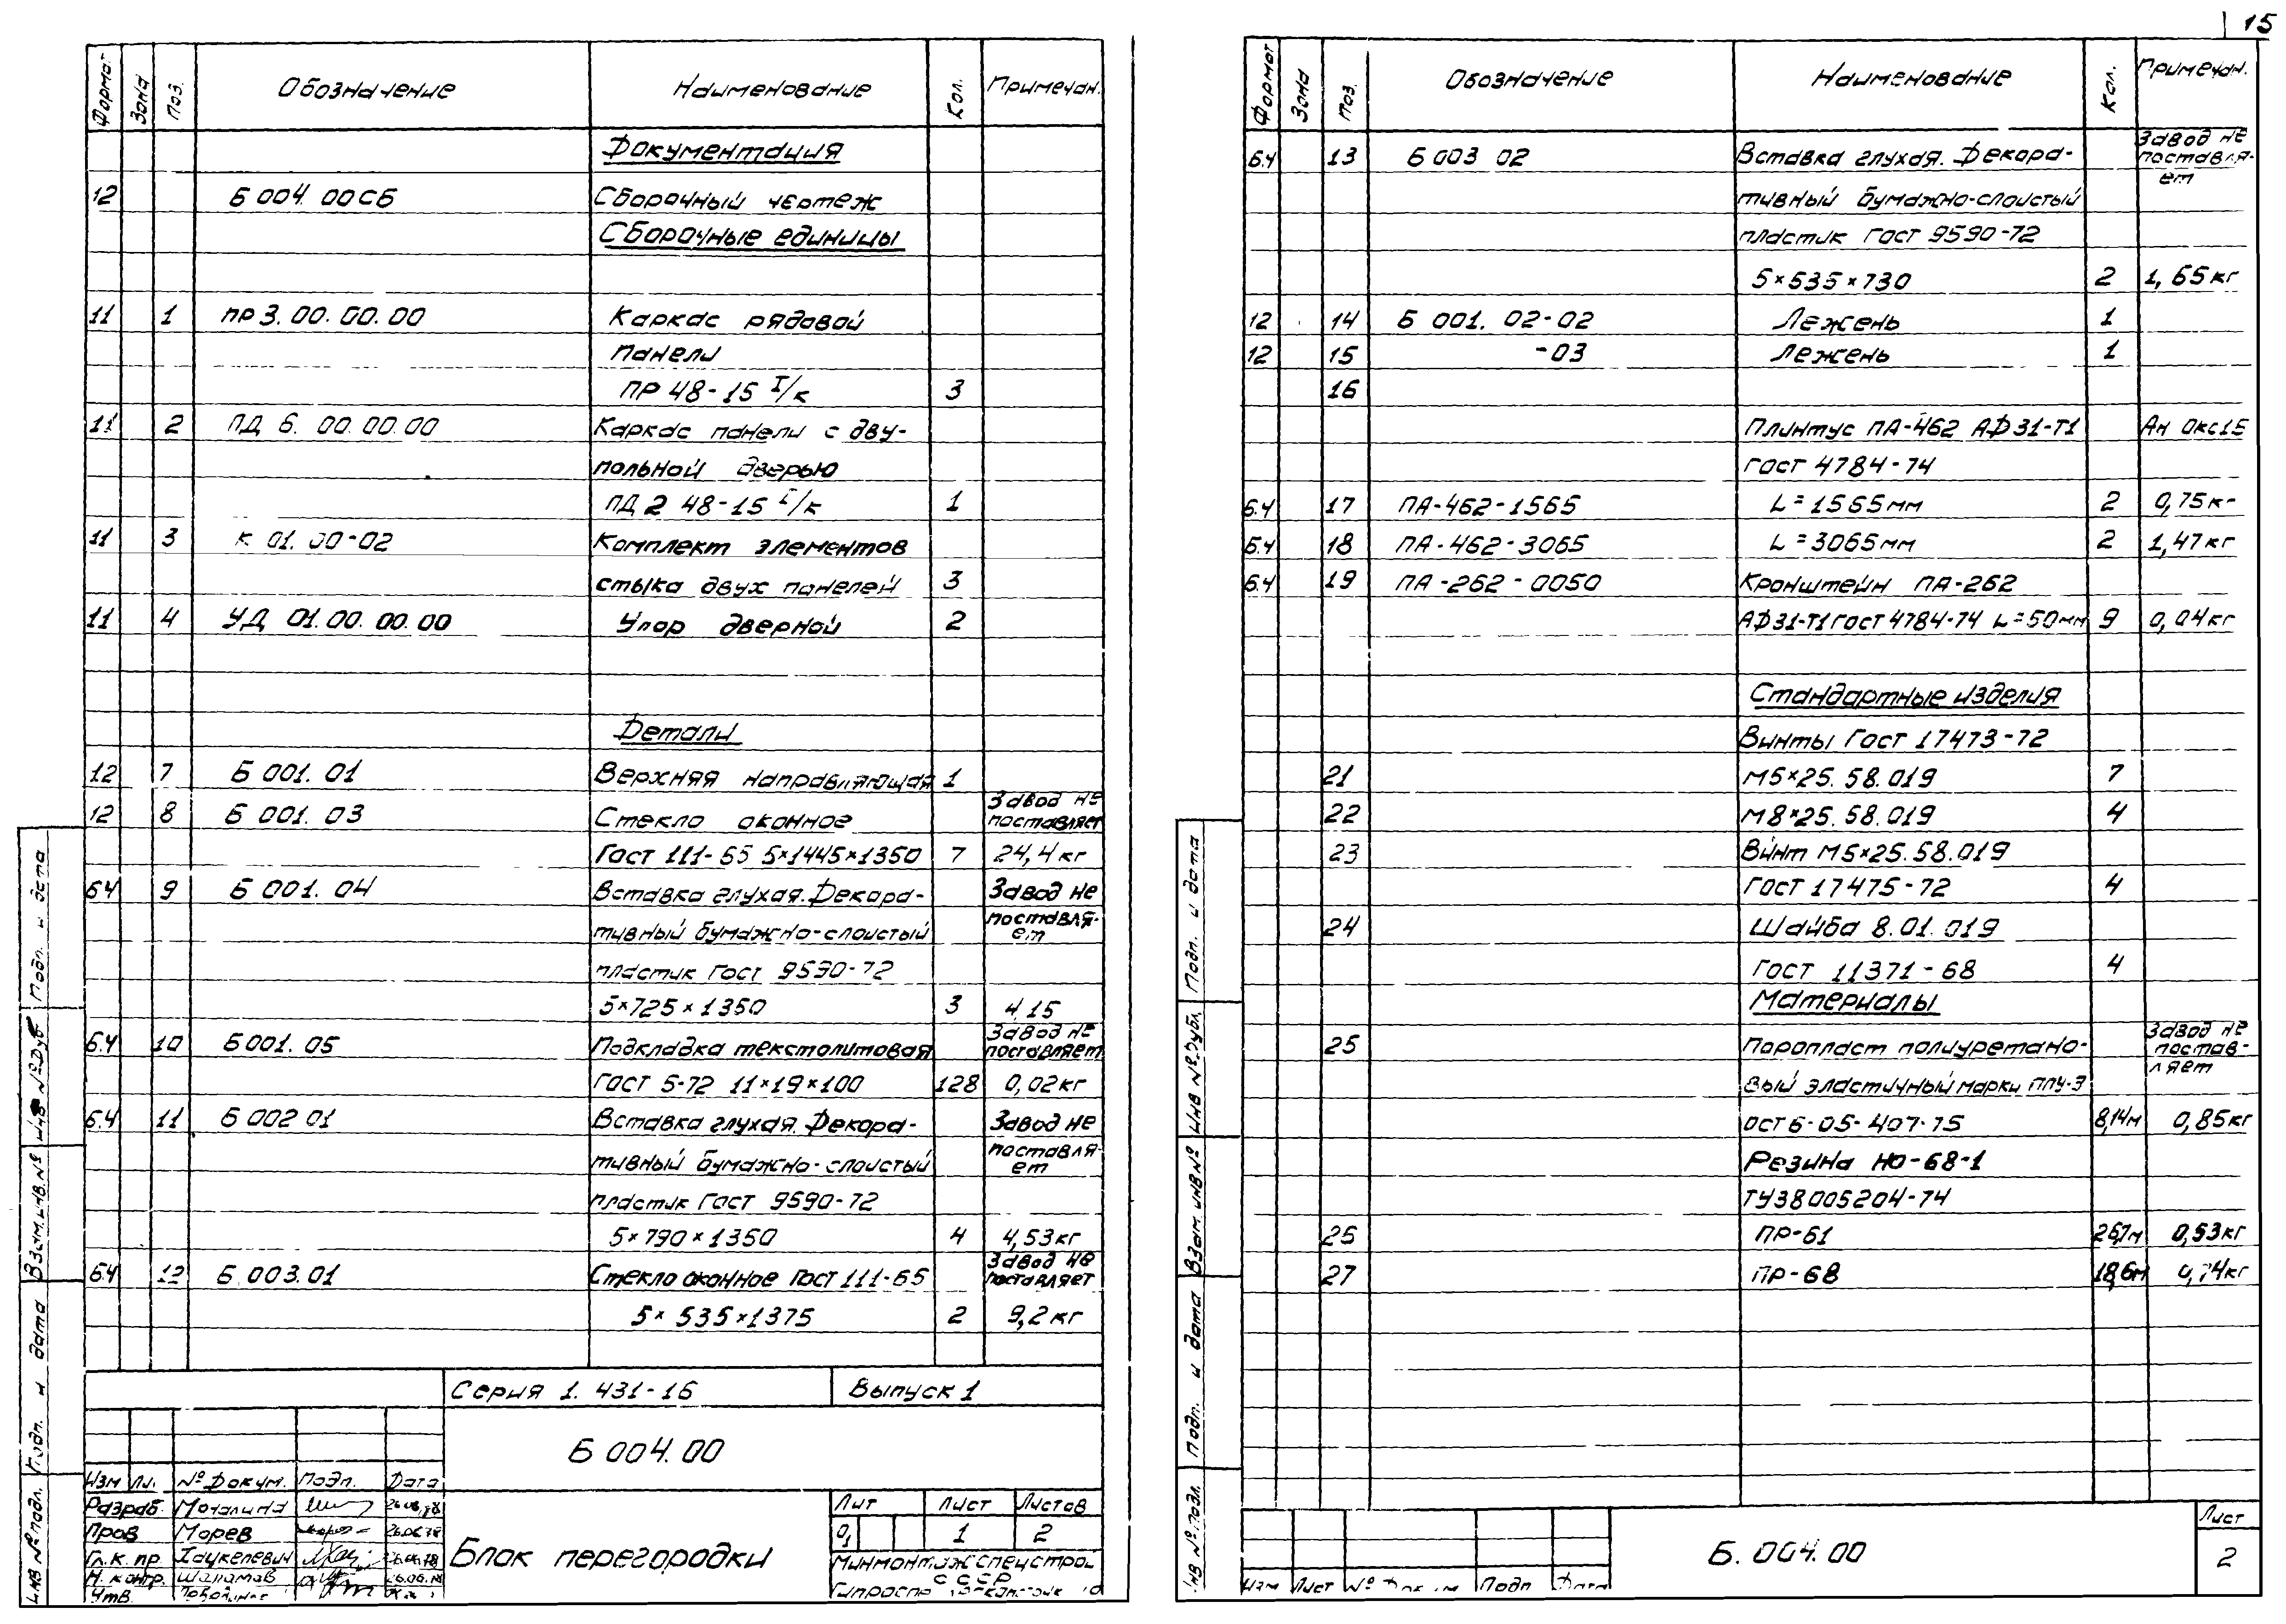 15
Формат Зона Поз. Обозначение Наименование Кол. Примечан.
Документация
12 Б 004. 00СБ Сборочный чертеж
Сборочные единицы
11 1 ПР 3. 00. 00. 00 Каркас рядовой
панели
ПР 48-15 I/к 3
11 2 ПД 6. 00. 00. 00 Каркас панели с дву-
польной дверью
ПД 2 48-15 I/к 1
11 3 К 01. 00-02 Комплект элементов
стыка двух панелей 3
11 4 УД 01. 00. 00. 00 Упор дверной 2
Детали
12 7 Б 001. 01 Верхняя направляющая 1
12 8 Б 001. 03 Стекло оконное Завод не поставляет
Гост 111-65 5×1445×1350 7 24,4 кг
Б4 9 Б 001. 04 Вставка глухая. Декора- Завод не
тивный бумажно-слоистый поставля-ет
пластик Гост 9590-72
5×725×1350 3 4,15
Б4 10 Б 001. 05 Подкладка текстолитовая Завод не поставляет
Гост 5-72 11×19×100 128 0,02 кг
Б4 11 Б 002 01 Вставка глухая. Декора- Завод не
тивный бумажно-слоистый поставля-ет
пластик Гост 9590-72
5×790×1350 4 4,53 кг
Б4 12 Б. 003. 01 Стекло оконное Гост 111-65 Завод не поставляет
5× 535×1375 2 9,2 кг
Серия 1. 431-16 Выпуск 1
Б 004. 00
Изм Ли. № Докум. Подп. Дата
Разраб. Мочалина 26.06.78
Пров Морев 26.06.78
Гл. к. пр. Хацкелевич 26.06.78
Н. контр. Шаламов 26.06.78
Утв.
Блок перегородки
Лит Лист Листов
1 2
Минмонтажспецстрой
СССР
Подп. и дата
Инв № Дуб
Взам. инв. №
Подп. и дата
Инв № подл.
Формат Зона Поз. Обозначение Наименование Кол. Примечан.
Б4 13 Б 003 02 Вставка глухая. Декора- Завод не поставля-ет
тивный бумажно-слоистый
пластик Гост 9590-72
5×535×730 2 1,65 кг
12 14 Б 001. 02-02 Лежень 1
12 15 -03 Лежень 1
16
Плинтус ПА-462 АД31-Т1 Ан Окс15
Гост 4784-74
Б4 17 ПА-462-1565 L=1565мм 2 0,75 кг
Б4 18 ПА-462-3065 L=3065мм 2 1,47 кг
Б4 19 ПА-262-0050 Кронштейн ПА-262
АД31-Т1 Гост 4784-74 L=50мм 9 0,04 кг
Стандартные изделия
Винты Гост 17473-72
21 М5×25. 58. 019 7
22 М8×25. 58. 019 4
23 Винт М5×25. 58. 019
Гост 17475-72 4
24 Шайба 8. 01. 019
Гост 11371-68 4
Материалы
25 Поропласт полиуретано- Завод не постав-ляет
вый эластичный марки ППУ-Э
ОСТ 6-05-407-75 8,14м 0,85 кг
Резина НО-68-1
ТУ38005204-74
26 ПР-61 26,7м 0,53 кг
27 ПР-68 18,6м 0,74 кг
Изм Лист № Докум Подп Дата
Б. 004. 00
Лист
2
Подп. и дата
Инв № дубл.
Взам. инв №
Подп. и дата
Инв № подл.